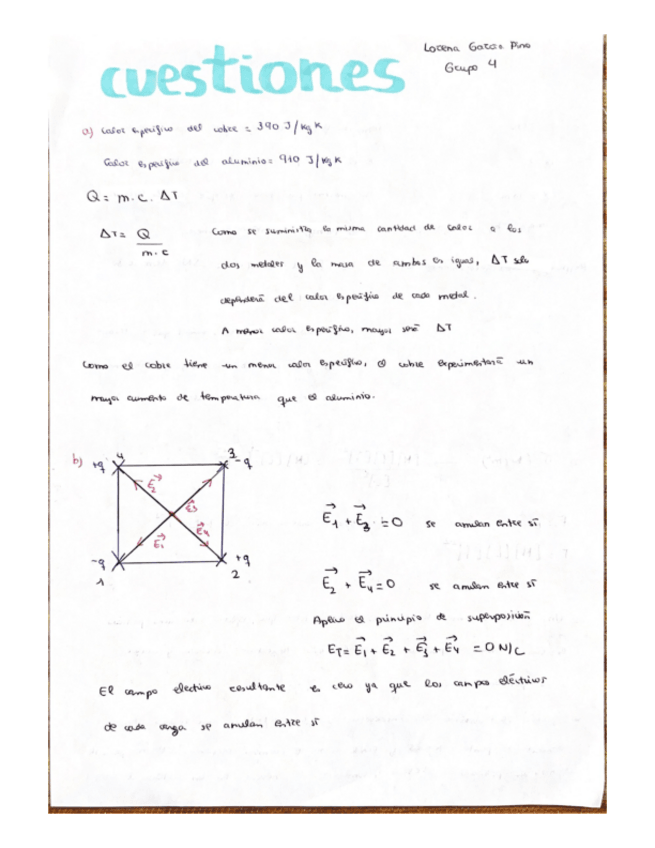 Lorena Garcia Pino
Grupo 4
cuestiones
a) Calor especifico del cobre = 390 J/kg K
Calor especifico del aluminio = 910 J/kg K
Q = m · c · ΔT
ΔT = Q / m · c
Como se suministra la misma cantidad de calor a los
dos metales y la masa de ambos es igual, ΔT solo
dependerá del calor especifico de cada metal.
A menor calor especifico, mayor será ΔT
Como el cobre tiene un menor calor especifico, el cobre experimentará un
mayor aumento de temperatura que el aluminio.
b)
+q 4
3 -q
E₂
E₃
E₄
E₁
-q
1
+q
2
E₁ + E₃ = 0 se anulan entre sí
E₂ + E₄ = 0 se anulan entre sí
Aplico el principio de superposición
ET = E₁ + E₂ + E₃ + E₄ = 0 N/C
El campo electrico resultante es cero ya que los campos eléctricos
de cada carga se anulan entre sí